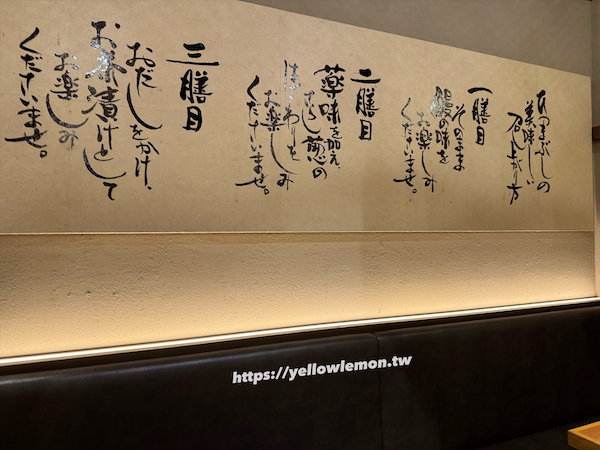 ひつまぶしの
美味しい
召し上がり方
一膳目
そのまま
鰻の味を
お楽しみ
くださいませ。
二膳目
薬味を加え、
さらし葱の
お楽しみ
くださいませ。
三膳目
おだしをかけ、
お茶漬けとして
お楽しみ
くださいませ。
https://yellowlemon.tw